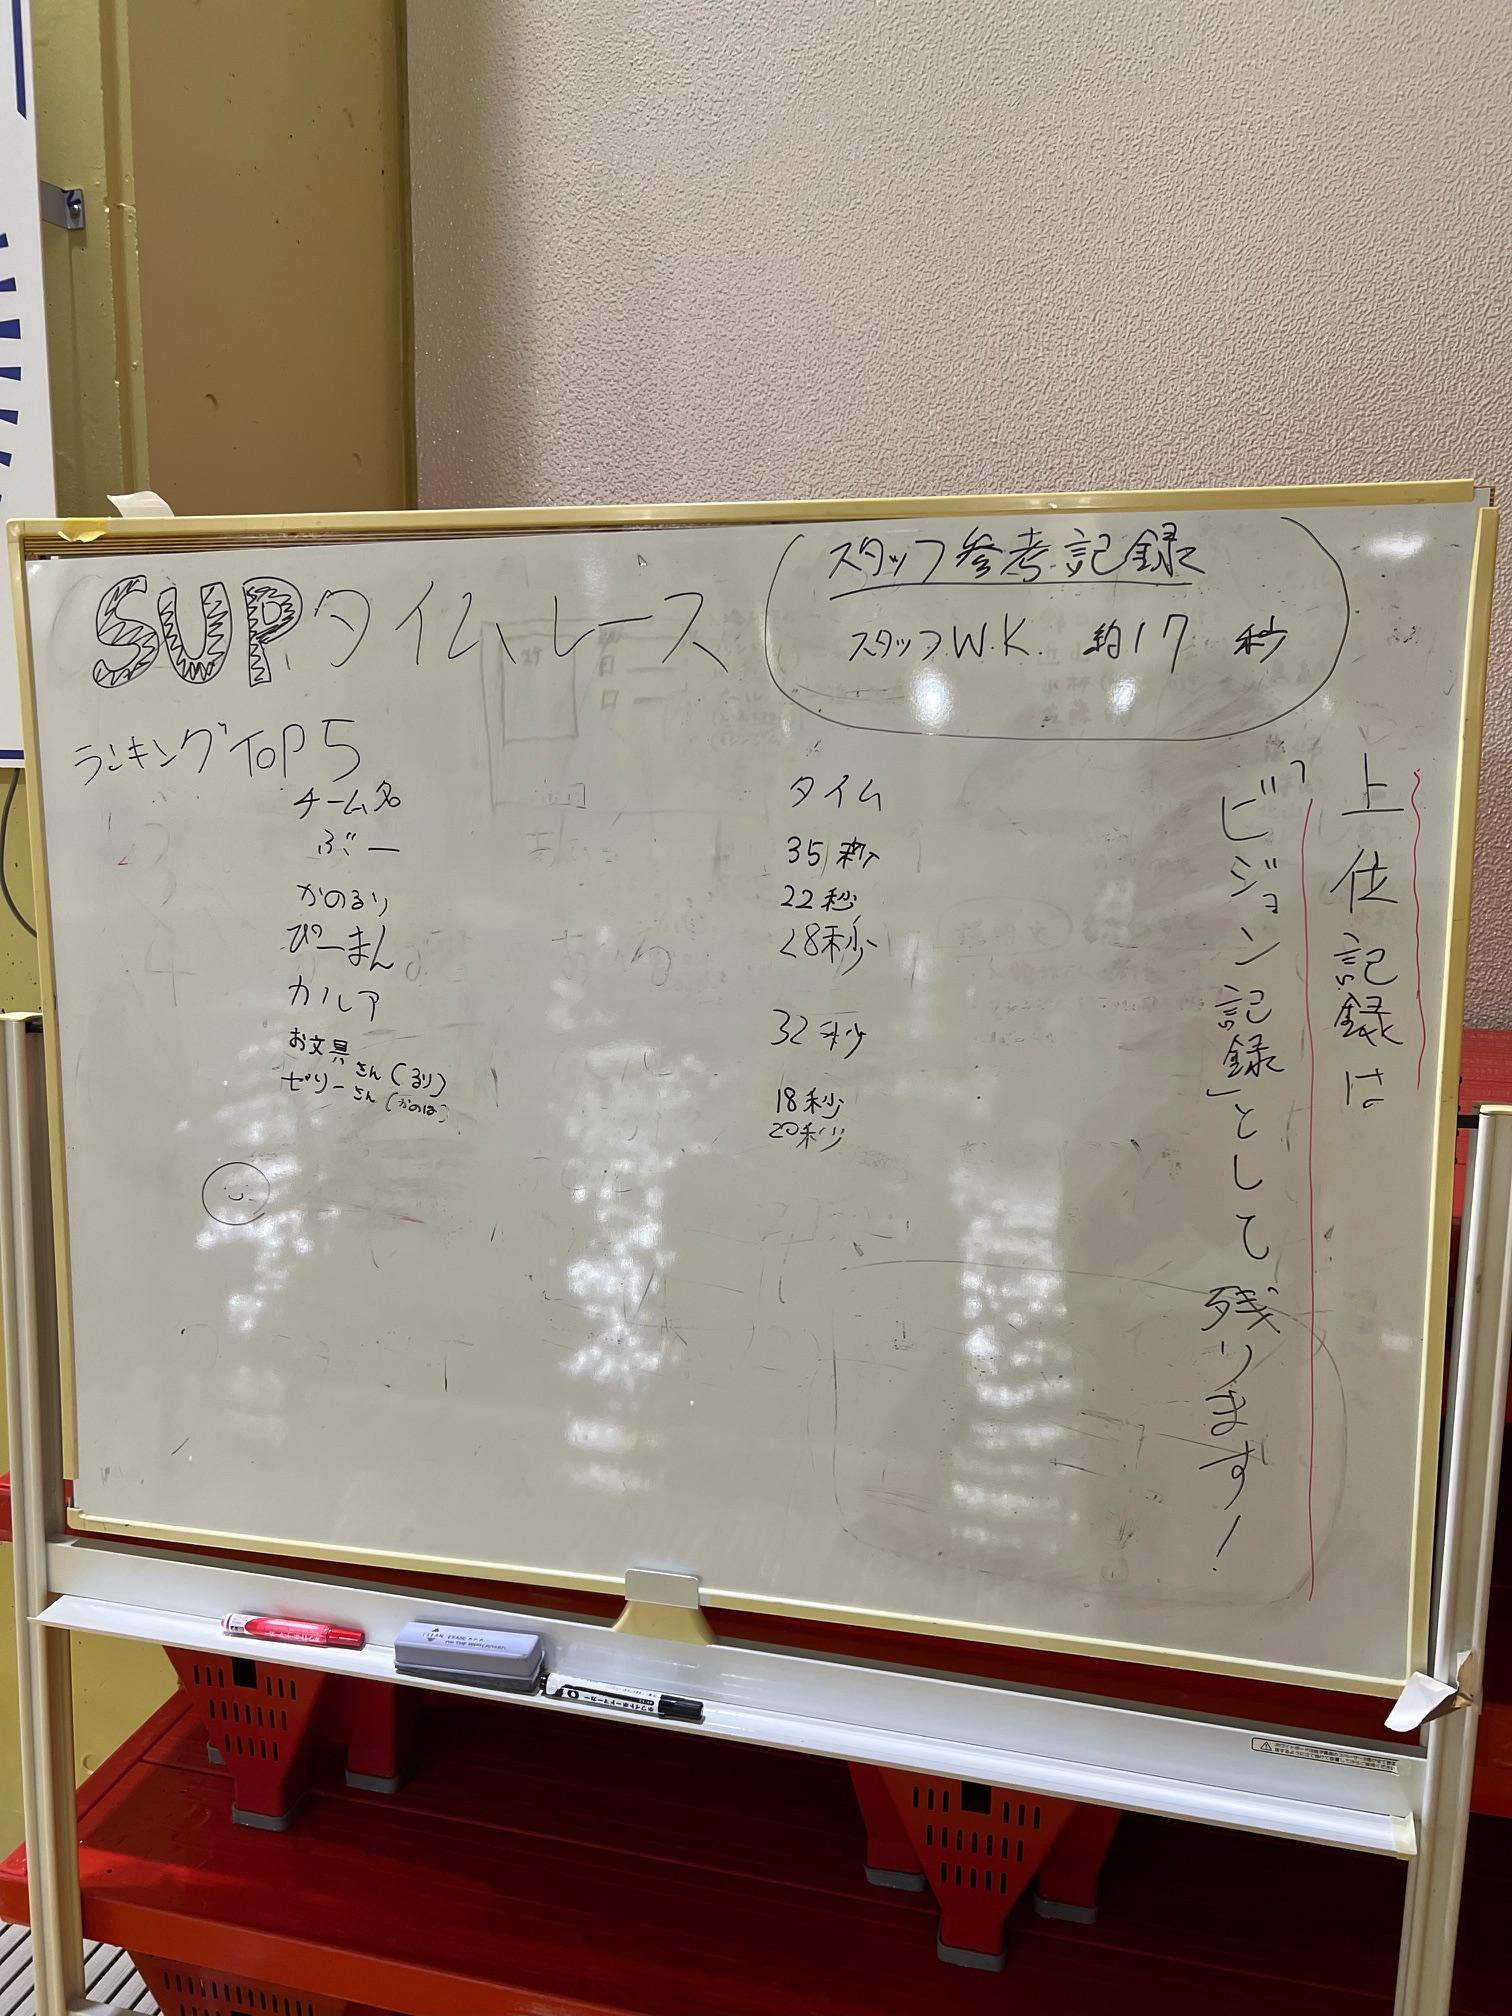 SUPタイムレース
スタッフ参考記録
スタッフW.K. 約17秒
ランキングTOP5
チーム名 タイム
ぶー 35秒
かのるり 22秒
ぴーまん 28秒
カルア 32秒
お文具さん(るり) 18秒
ゼリーさん(かのは) 20秒
上位記録は
「ビジョン記録」として残ります!